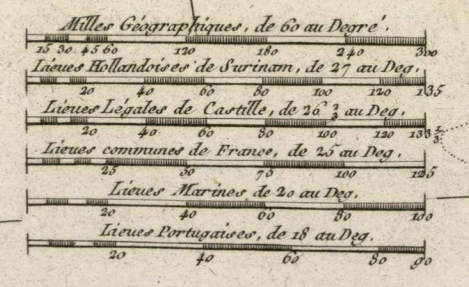 Milles Géographiques, de 60 au Degré.
15 30 45 60 120 180 240 300
Lieues Hollandoises de Surinam, de 27 au Deg.
20 40 60 80 100 120 135
Lieues Légales de Castille, de 26 2/3 au Deg.
20 40 60 80 100 120 133 1/3
Lieues communes de France, de 25 au Deg.
25 50 75 100 125
Lieues Marines de 20 au Deg.
20 40 60 80 100
Lieues Portugaises, de 18 au Deg.
20 40 60 80 90